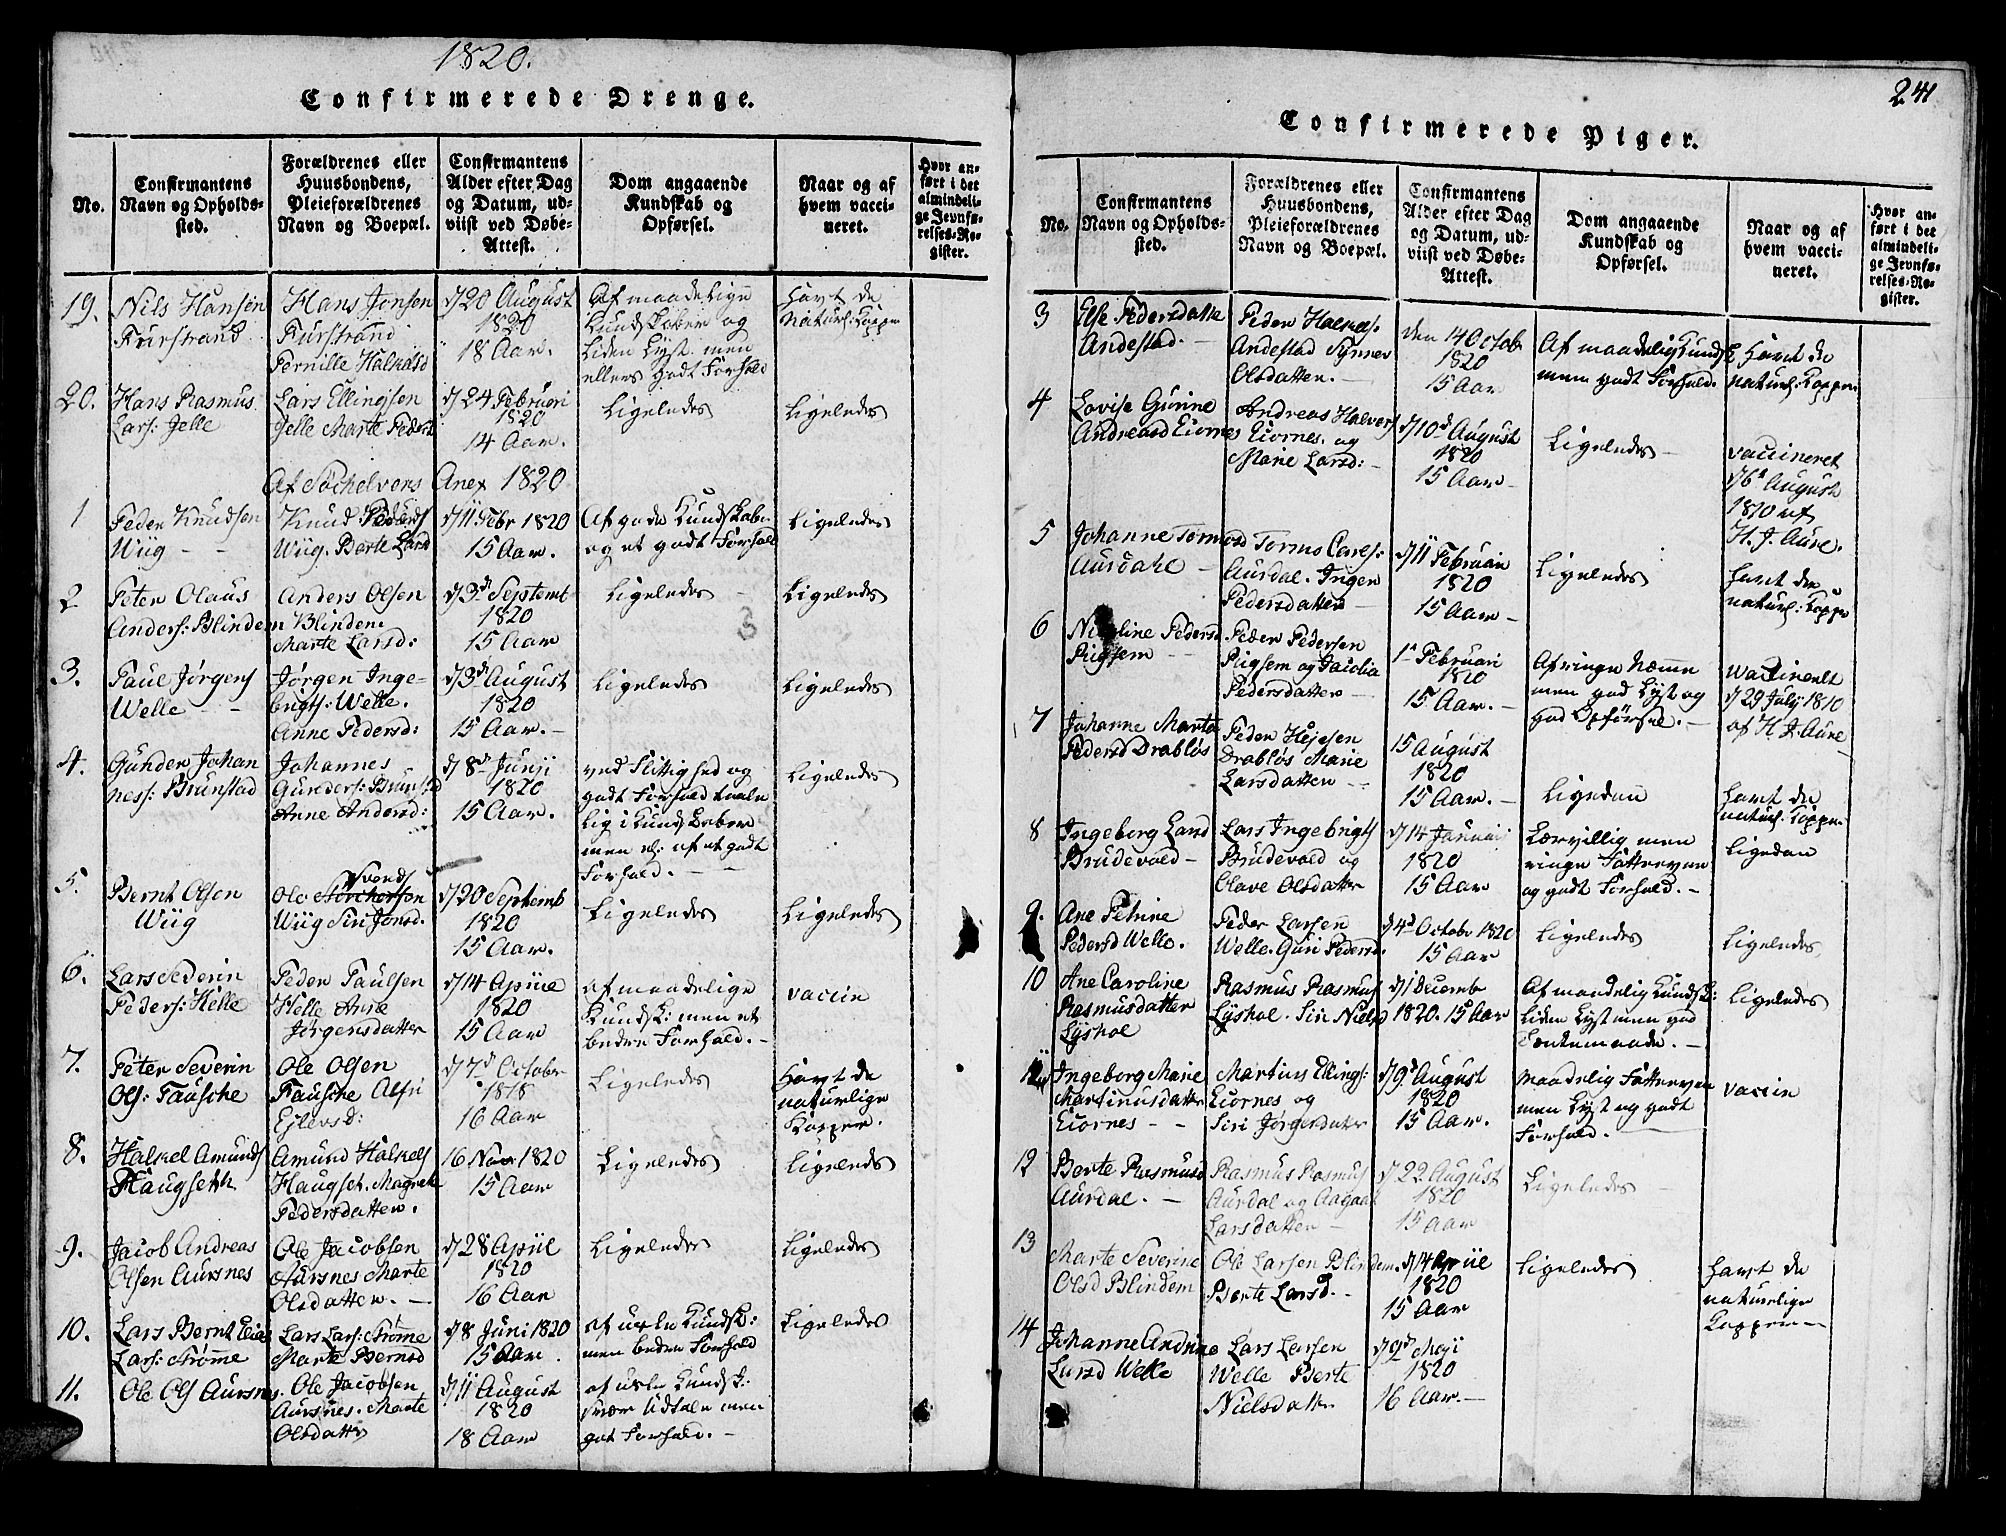 1820.
Confirmerede Drenge.
No.
Confirmantens
Navn og Opholds-
sted.
Forældrenes eller
Huusbondens,
Pleieforældrenes
Navn og Boepæl.
Confirmantens
Alder efter Dag
og Datum, ud-
viist ved Døbe-
Attest.
Dom angaaende
Kundskab og
Opførsel.
Naar og af
hvem vacci-
neret.
Hvor an-
ført i det
almindeli-
ge Jevnfø-
relses-Re-
gister.
19.
Nils Hansen
Furstrand
Hans Jonsen
Furstrand
Pernille Halkasd
d/20 August
1820
18 Aar.
Af maadelige
Kundskaber og
liden Lyst men
ellers godt Forhold
Havt de
naturl: Kopper
20.
Hans Rasmus
Lars: Jelle
Lars Ellingsen
Jelle Marte Pedersd
d/24 Februari
1820
14 Aar.
Ligeledes
Ligeledes
Af Søchelvens Anex 1820
1
Peder Knudsen
Wiig - -
Knud Peders
Wiig. Berte Larsd
d/11 Febr 1820
15 Aar.
Af gode Kundskaber
og et godt Forhold
Ligeledes
2
Peter Olaus
Anders: Blindem
Anders Olsen
Blindem.
Marte Larsd:
d/3d Septemb
1820
15 Aar
Ligeledes
Ligeledes
3
3.
Paul Jørgens
Welle - -
Jørgen Inge-
brigts: Welle.
Anne Pedersd:
d/3d August
1820
15 Aar. -
Ligeledes
Ligeledes
4.
Gunder Johan
ness: Brunstad
Johannes
Gunders: Brunstd
Anne Andersd:
d/8d Junji
1820
15 Aar.
ved Flittighed og
godt Forhold taale
lig i Kundskaber
men el: af et godt
Forhold. - -
Ligeledes
5.
Bernt Olsen
Wiig
Svends
Ole
Wiig Siri Jonsd.
d/20 Septemb
1820
15 Aar.
Ligeledes
Ligeledes
6.
Lars Sederin
Peders: Helle
Peder Paulsen
Helle Anne
Jørgensdatter
d/14 Apriie
1820
15 Aar
af maadelige
Kundsk: men et
bedre Forhold. -
vaccin
7.
Peter Severin
Ols: Fausche
Ole Olsen
Fausche Alsri
Ejlersd:
d/7d October
1818
16 Aar
Ligeledes
Havt de
naturlige
Kopper.
8.
Halkel Amunds
Haugseth
Amund Halkels
Haugset. Magrete
Pedersdatter.
16 Nov 1820
15 Aar
Ligeledes
Ligeledes
9.
Jacob Andreas
Olsen Aursnes
Ole Jacobsen
Aursnes Marte
Olsdatter. -
d/28 Apriil
1820
16 Aar
Ligeledes
Ligeledes
10.
Lars Bernt
Lars: Strømme
Lars Lars: Strømme
Marte Berntsd
d/8 Juni 1820
15 Aar.
af usle Kundsk:
men bedre Forhold
Ligeledes
11.
Ole Ols Aursnes.
Ole Jacobsen
Aursnes. Marte
Olsdatter
d/11 August
1820
18 Aar
af usle Kundsk:
svær Udtale men
got Forhold. -
241
Confirmerede Piger.
No.
Confirmantens
Navn og Opholds-
sted.
Forældrenes eller
Huusbondens,
Pleieforældrenes
Navn og Boepæl.
Confirmantens
Alder efter Dag
og Datum, ud-
viist ved Døbe-
Attest.
Dom angaaende
Kundskab og
Opførsel.
Naar og af
hvem vacci-
neret.
Hvor an-
ført i det
almindeli-
ge Jevnfø-
relses-Re-
gister.
3
Else Pedersdatte
Andestad. -
Peder Halkels:
Andestad Synnev
Olsdatter. -
den 14 Octob
1820
15 Aar
Af maadelig Kundsk
men godt Forhold.
Havt de
naturl: Kopper
4
Lovise Gurine
Andreasd Eiornes
Andreas Halvors
Eiornes. og
Marie Larsd: -
d/10d August
1820
15 Aar -
Ligeledes -
vaccineret
d/6d August
1810 af
H. J. Aure.
5
Johanne Tormod
Aurdahl -
Tormo Carls:
Aurdal. Inger
Pedersdatter -
d/11 Februari
1820
15 Aar -
Ligeledes
havt de
naturl: Koppe
6
Nicoline Pedersd
Rigsem - -
Peder Pedersen
Rigsem og Jacolia
Pedersdatter -
1d Februari
1820
15 Aar. -
Af ringe Nemme
men god Lyst og
god Opførsel. -
Waccinerlt
d/29 July 1810
af H. J. Aure
7
Johanne Marta
Pedersd Drabløs
Peder Hejesen
Drabløs Marie
Larsdatter - -
15 August
1820
15 Aar. -
Ligedan
havt de
naturl: Kopper
8
Ingeborg Larsd
Brudevold -
Lars Ingebrigts
Brudevold og
Olave Olsdatter
d/14 Januari
1820
15 Aar
Lærvillig men
ringe Fatteevne
og godt Forhold. -
Ligedan
9.
Ane Petrine
Pedersd Welle.
Peder Larsen
Welle. Guri Pedersd.
d/4d Octobr 1820
15 Aar
Ligeledes
Ligeledes
10
Ane Caroline
Rasmusdatter
Lyshol
Rasmus Rasmus
Lyshol. Siri Nielsd
d/1 Decemb
1820. 15 Aar
Af maadelig Kundsk:
liden Lyst men god
Tænkemaade. -
Ligeledes
11
Ingeborg Marie
Martinusdatter
Eiornes - -
Martinus Ellings:
Eiornes og
Siri Jørgensdatter
d/9d August
1820
15 Aar.
Maadelig Fatteevne
men Lyst og godt
Forhold.
vaccin
12
Berte Rasmusd
Aurdal. -
Rasmus Rasmus
Aurdal og Aagaat
Larsdatter -
d/22 August
1820
15 Aar
Ligeledes -
13
Marte Severine
Olsd Blindem
Ole Larsen Blindem.
Berte Larsd. -
d/14 Apriil
1820
15 Aar
Ligeledes
havt de
naturlige
Kopper -
14
Johanne Andrine
Larsd Welle
Lars Larsen
Welle Berte
Nielsdatter
d/9d Maji
1820
16 Aar. -